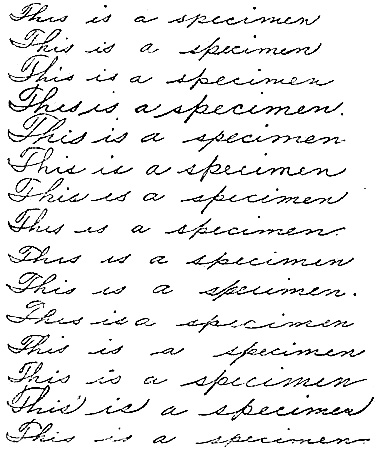 This is a specimen
This is a specimen
This is a specimen
This is a specimen.
This is a specimen
This is a specimen
This is a specimen
This is a specimen.
This is a specimen
This is a specimen.
This is a specimen
This is a specimen
This is a specimen
This is a specimen
This is a specimen